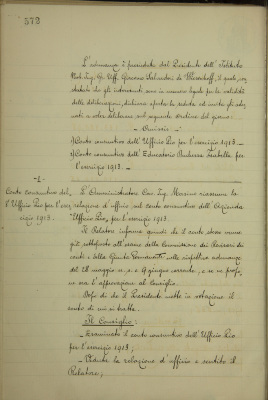 572
L'adunanza è presieduta dal Presidente dell'Istituto
Nob. Ing. Gr. Uff. Giacomo Salvadori di Wiesenhoff, il quale, con-
statato che gli intervenuti sono in numero legale per la validità
delle deliberazioni, dichiara aperta la seduta ed invita gli adu-
nati a voler deliberare sul seguente ordine del giorno:
- Omissis -
1) Conto consuntivo dell'Ufficio Pio per l'esercizio 1913. -
2) Conto consuntivo dell'Educatorio Duchessa Isabella per
l'esercizio 1913. -
- 1 -
Conto consuntivo del-
l'Ufficio Pio per l'eser-
cizio 1913.
L'Amministratore Cav. Ing. Massimo riassume la
relazione d'ufficio sul conto consuntivo dell'Azienda
"Ufficio Pio", per l'esercizio 1913.
Il Relatore informa quindi che il conto stesso venne
già sottoposto all'esame della Commissione dei Revisori dei
conti e della Giunta Permanente nelle rispettive adunanze
del 28 maggio u. s. e 9 giugno corrente, e ne propo-
ne ora l'approvazione al Consiglio.
Dopo di che il Presidente mette in votazione il
conto di cui si tratta.
Il Consiglio:
- Esaminato il conto consuntivo dell'Ufficio Pio
per l'esercizio 1913;
- Udita la relazione d'ufficio e sentito il
Relatore;